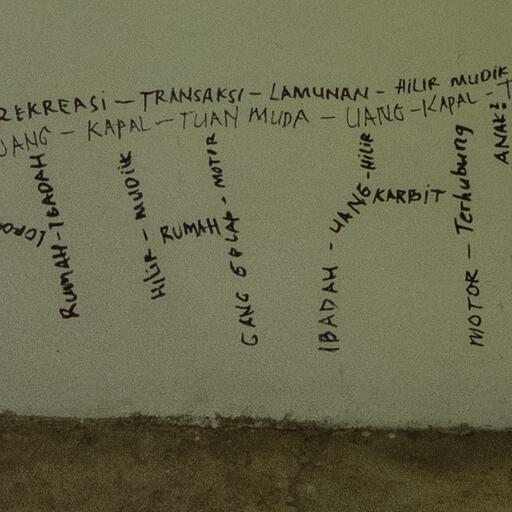 REKREASI – TRANSAKSI – LAMUNAN – HILIR MUDIK
UANG – KAPAL – TUAN MUDA – UANG – KAPAL – T
RUMAH – IBADAH
HILIR – MUDIK
RUMAH
GANG GELAP – MOTOR
IBADAH – UANG – HILIR
KARBIT
MOTOR – Terhubung
ANAK²